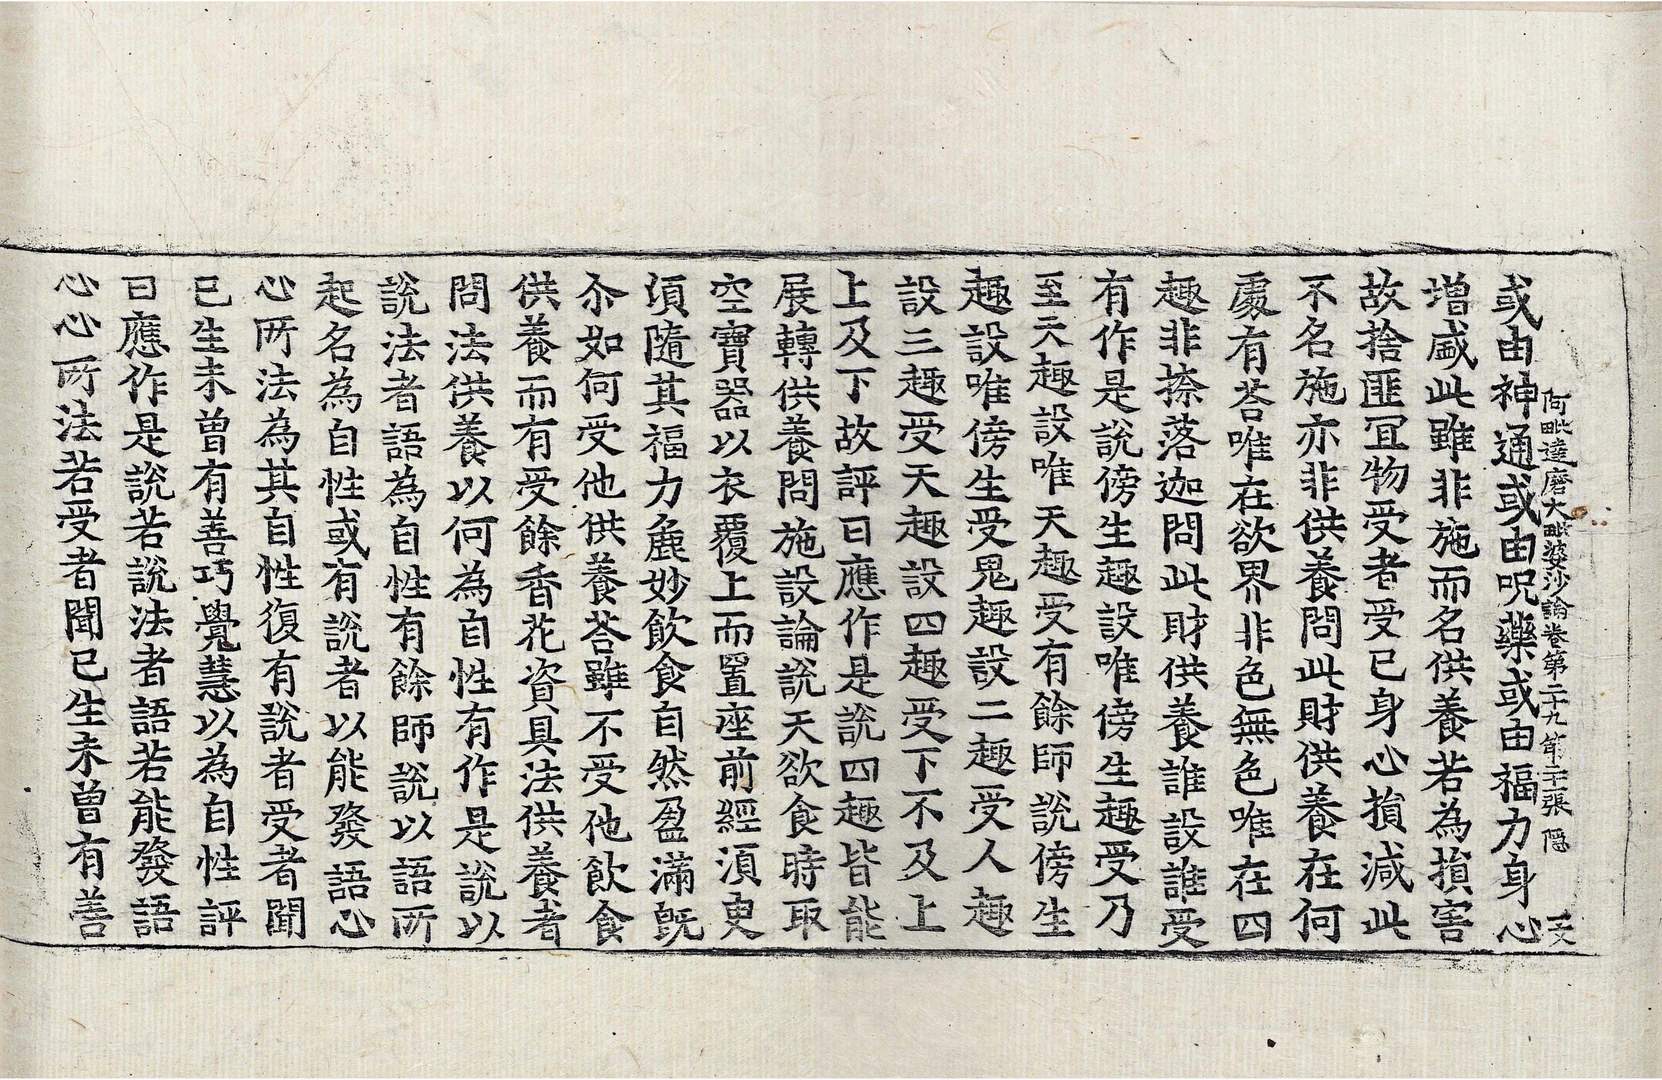 阿毗達磨大毗婆沙論卷第二十九 第張 隱
或由神通或由呪藥或由福力身心
增盛此雖非施而名供養若為損害
故捨匪冝物受者受已身心損減此
不名施亦非供養問此財供養在何
處有荅唯在欲界非色無色唯在四
趣非捺落迦問此財供養誰設誰受
有作是說傍生趣設唯傍生趣受乃
至天趣設唯天趣受有餘師說傍生
趣設唯傍生受鬼趣設二趣受人趣
設三趣受天趣設四趣受下不及上
上及下故評曰應作是說四趣皆能
展轉供養問施設論說天欲食時取
空寶器以衣覆上而置座前經須臾
頃隨其福力麁妙飲食自然盈滿旣
尒如何受他供養荅雖不受他飲食
供養而有受餘香花資具法供養者
問法供養以何為自性有作是說以
說法者語為自性有餘師說以語所
起名為自性或有說者以能發語心
心所法為其自性復有說者受者聞
已生未曾有善巧覺慧以為自性評
曰應作是說若說法者語若能發語
心心所法若受者聞已生未曾有善